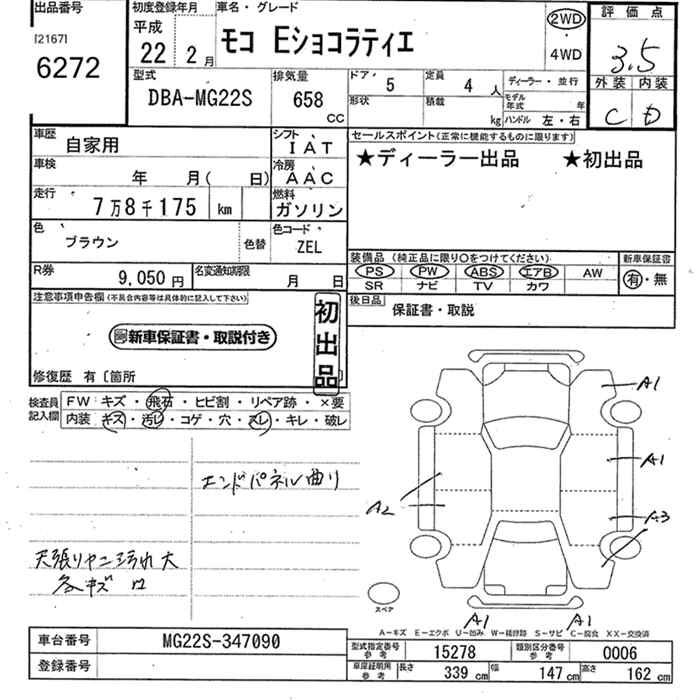 出品番号 初度登録年月 車名・グレード 評価点
[2167] 6272 平成 22年 2月 モコ Eショコラティエ 2WD 4WD 3.5
型式 DBA-MG22S 排気量 658 CC ドア 5 定員 4人 ディーラー・並行 外装 内装
形状 積載 kg モデル年式 年 ハンドル 左・右 C D
車歴 自家用 シフト IAT セールスポイント(正常に機能するものに限ります)
車検 年 月( 日) 冷房 AAC ★ディーラー出品 ★初出品
走行 7万8千175 km 燃料 ガソリン
色 ブラウン 色替 色コード ZEL 装備品(純正品に限り○をつけてください) 新車保証書
PS PW ABS エアB AW 有・無
SR ナビ TV カワ
R券 9,050円 名変通知期限 月 日 後日品 保証書・取説
注意事項申告欄(不具合内容等は具体的に記入して下さい) 初出品
新車保証書・取説付き
修復歴 有〔箇所 〕
検査員記入欄 FW キズ・飛石・ヒビ割・リペア跡・×要
内装 キズ・汚レ・コゲ・穴・スレ・キレ・破レ
エンドパネル曲り
天張りヤニ汚れ大
各キズ
A1
A1
A2
A3
スペア
A1 A1
A-キズ E-エクボ U-凹み W-補修跡 S-サビ C-腐食 XX-交換済
車台番号 MG22S-347090 型式指定番号 参考 15278 類別区分番号 参考 0006
登録番号 車庫証明用 参考 長さ 339 cm 幅 147 cm 高さ 162 cm